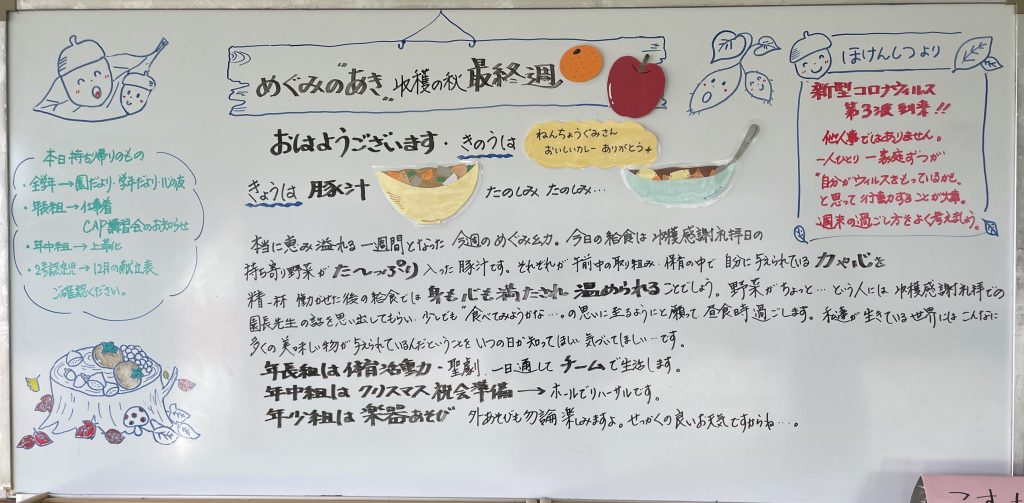 めぐみの"あき" 収穫の秋 最終週。
おはようございます。きのうは
ねんちょうぐみさん
おいしいカレー ありがとう
きょうは 豚汁
たのしみ たのしみ…
本当に恵み溢れる一週間となった 今週のめぐみ幼。今日の給食は 収穫感謝礼拝日の
持ち寄り野菜が た〜っぷり 入った豚汁です。それぞれが 午前中の取り組み・保育の中で 自分に与えられている 力や心を
精一杯 働かせた後の給食では 身も心も満たされ 温められることでしょう。野菜がちょっと…という人には 収穫感謝礼拝での
園長先生の話を思い出してもらい、少しでも"食べてみようかな…"の思いに至るようにと願って、昼食時過ごします。私達が生きている世界にはこんなに
多くの美味しい物が 与えられているんだということを いつの日か知ってほしい 気づいてほしい…です。
年長組は 体育活動・聖劇 一日通して チームで生活します。
年中組は クリスマス祝会準備 → ホールでリハーサルです。
年少組は 楽器あそび 外あそびも勿論 楽しみますよ。せっかくの良いお天気ですからね…。
本日持ち帰りのもの
・全学年→園だより・学年だより・心の友
・年長組→仕事着
CAP講習会のお知らせ
・年中組→上靴
・2号認定児→12月の献立表
ご確認ください。
ほけんしつより
新型コロナウィルス
第3波到来!!
他人事ではありません。
一人ひとり 一家庭ずつが
"自分がウィルスをもっているかも"
と思って行動することが大事。
週末の過ごし方をよく考えましょう。